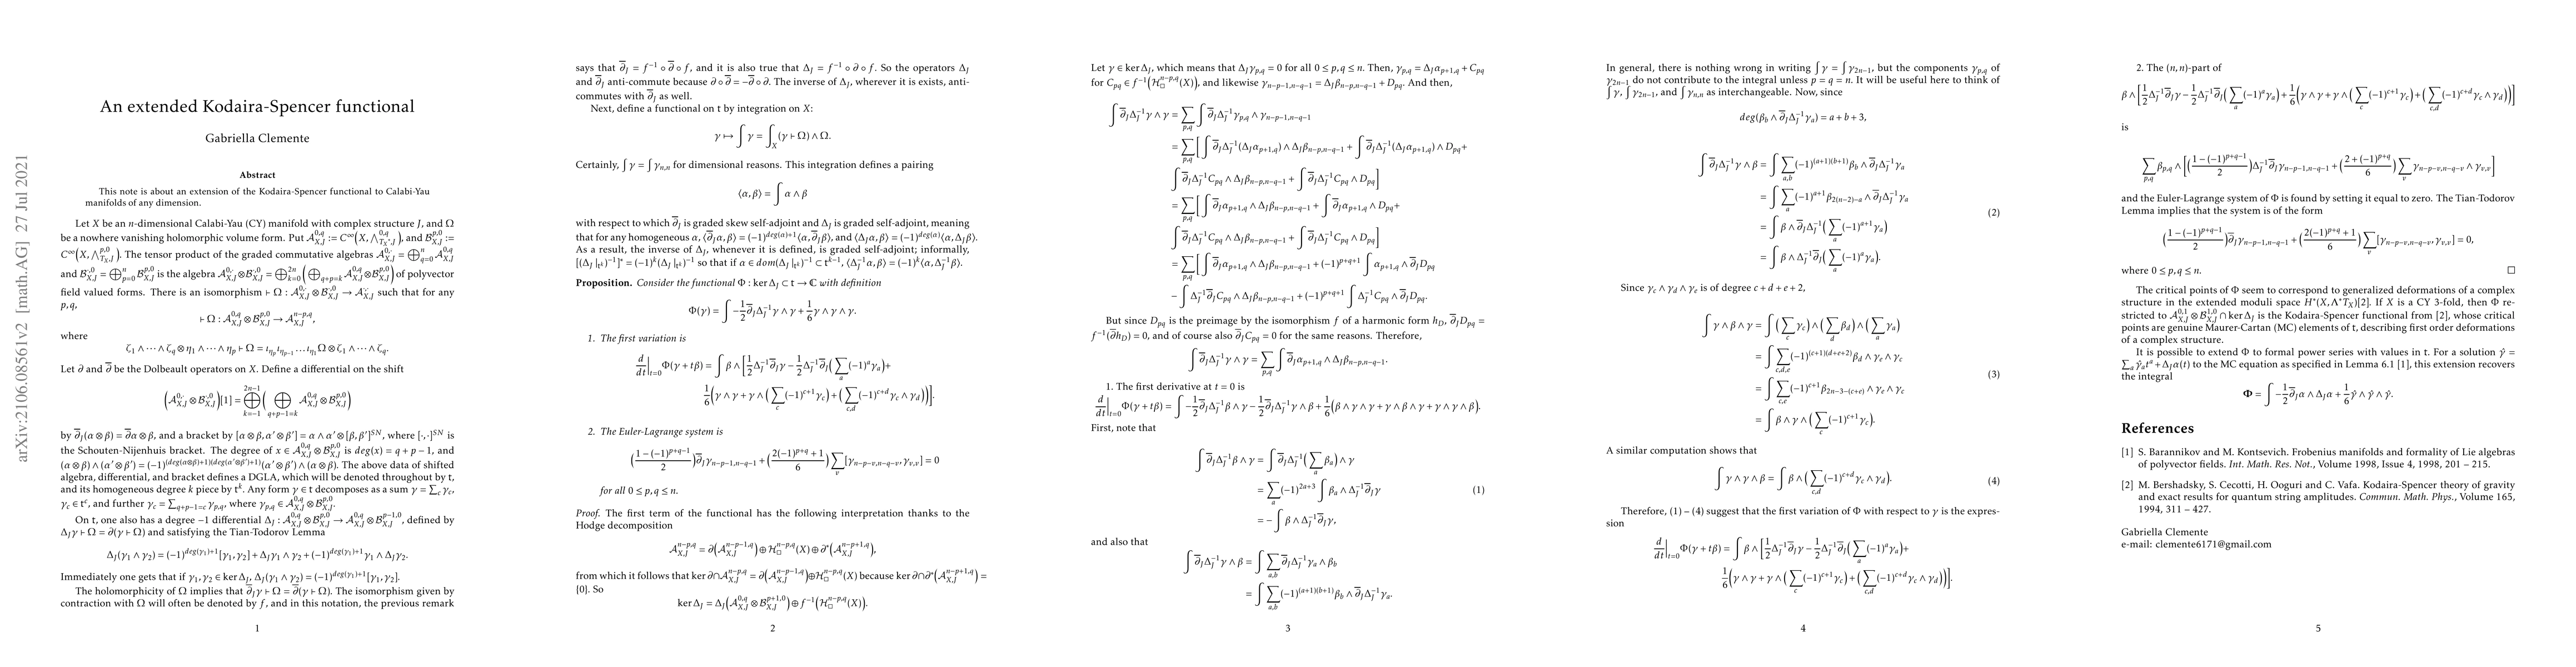 arXiv:2106.08561v2 [math.AG] 27 Jul 2021
An extended Kodaira-Spencer functional
Gabriella Clemente
Abstract
This note is about an extension of the Kodaira-Spencer functional to Calabi-Yau
manifolds of any dimension.
Let X be an n-dimensional Calabi-Yau (CY) manifold with complex structure J, and Ω
be a nowhere vanishing holomorphic volume form. Put 𝒜^{0,q}_{X,J} := C^∞(X, ⋀^{0,q}_{T_X^*,J}), and ℬ^{p,0}_{X,J} :=
C^∞(X, ⋀^{p,0}_{T_X,J}). The tensor product of the graded commutative algebras 𝒜^{0,·}_{X,J} = ⊕^n_{q=0} 𝒜^{0,q}_{X,J}
and ℬ^{·,0}_{X,J} = ⊕^n_{p=0} ℬ^{p,0}_{X,J} is the algebra 𝒜^{0,·}_{X,J} ⊗ ℬ^{·,0}_{X,J} = ⊕^{2n}_{k=0} (⊕_{q+p=k} 𝒜^{0,q}_{X,J} ⊗ ℬ^{p,0}_{X,J}) of polyvector
field valued forms. There is an isomorphism ⊢ Ω : 𝒜^{0,·}_{X,J} ⊗ ℬ^{·,0}_{X,J} → 𝒜^{·,·}_{X,J} such that for any
p, q,
⊢ Ω : 𝒜^{0,q}_{X,J} ⊗ ℬ^{p,0}_{X,J} → 𝒜^{n−p,q}_{X,J},
where
ζ_1 ∧ ··· ∧ ζ_q ⊗ η_1 ∧ ··· ∧ η_p ⊢ Ω = ι_{η_p} ι_{η_{p−1}} … ι_{η_1} Ω ⊗ ζ_1 ∧ ··· ∧ ζ_q.
Let ∂ and ∂̄ be the Dolbeault operators on X. Define a differential on the shift
(𝒜^{0,·}_{X,J} ⊗ ℬ^{·,0}_{X,J})[1] = ⊕^{2n−1}_{k=−1} (⊕_{q+p−1=k} 𝒜^{0,q}_{X,J} ⊗ ℬ^{p,0}_{X,J})
by ∂̄_J(α ⊗ β) = ∂̄α ⊗ β, and a bracket by [α ⊗ β, α′ ⊗ β′] = α ∧ α′ ⊗ [β, β′]^{SN}, where [·,·]^{SN} is
the Schouten-Nijenhuis bracket. The degree of x ∈ 𝒜^{0,q}_{X,J} ⊗ ℬ^{p,0}_{X,J} is deg(x) = q + p − 1, and
(α ⊗ β) ∧ (α′ ⊗ β′) = (−1)^{(deg(α⊗β)+1)(deg(α′⊗β′)+1)} (α′ ⊗ β′) ∧ (α ⊗ β). The above data of shifted
algebra, differential, and bracket defines a DGLA, which will be denoted throughout by t,
and its homogeneous degree k piece by t^k. Any form γ ∈ t decomposes as a sum γ = ∑_c γ_c,
γ_c ∈ t^c, and further γ_c = ∑_{q+p−1=c} γ_{p,q}, where γ_{p,q} ∈ 𝒜^{0,q}_{X,J} ⊗ ℬ^{p,0}_{X,J}.
On t, one also has a degree −1 differential Δ_J : 𝒜^{0,q}_{X,J} ⊗ ℬ^{p,0}_{X,J} → 𝒜^{0,q}_{X,J} ⊗ ℬ^{p−1,0}_{X,J}, defined by
Δ_J γ ⊢ Ω = ∂(γ ⊢ Ω) and satisfying the Tian-Todorov Lemma
Δ_J(γ_1 ∧ γ_2) = (−1)^{deg(γ_1)+1}[γ_1, γ_2] + Δ_J γ_1 ∧ γ_2 + (−1)^{deg(γ_1)+1} γ_1 ∧ Δ_J γ_2.
Immediately one gets that if γ_1, γ_2 ∈ ker Δ_J, Δ_J(γ_1 ∧ γ_2) = (−1)^{deg(γ_1)+1}[γ_1, γ_2].
The holomorphicity of Ω implies that ∂̄_J γ ⊢ Ω = ∂̄(γ ⊢ Ω). The isomorphism given by
contraction with Ω will often be denoted by f, and in this notation, the previous remark
1
says that ∂̄_J = f^{−1} ∘ ∂̄ ∘ f, and it is also true that Δ_J = f^{−1} ∘ ∂ ∘ f. So the operators Δ_J
and ∂̄_J anti-commute because ∂ ∘ ∂̄ = −∂̄ ∘ ∂. The inverse of Δ_J, wherever it is exists, anti-
commutes with ∂̄_J as well.
Next, define a functional on t by integration on X:
γ ↦ ∫ γ = ∫_X (γ ⊢ Ω) ∧ Ω.
Certainly, ∫ γ = ∫ γ_{n,n} for dimensional reasons. This integration defines a pairing
⟨α, β⟩ = ∫ α ∧ β
with respect to which ∂̄_J is graded skew self-adjoint and Δ_J is graded self-adjoint, meaning
that for any homogeneous α, ⟨∂̄_J α, β⟩ = (−1)^{deg(α)+1}⟨α, ∂̄_J β⟩, and ⟨Δ_J α, β⟩ = (−1)^{deg(α)}⟨α, Δ_J β⟩.
As a result, the inverse of Δ_J, whenever it is defined, is graded self-adjoint; informally,
[(Δ_J |_{t^k})^{−1}]^* = (−1)^k (Δ_J |_{t^k})^{−1} so that if α ∈ dom(Δ_J |_{t^k})^{−1} ⊂ t^{k−1}, ⟨Δ_J^{−1} α, β⟩ = (−1)^k⟨α, Δ_J^{−1} β⟩.
Proposition. Consider the functional Φ : ker Δ_J ⊂ t → ℂ with definition
Φ(γ) = ∫ −1/2 ∂̄_J Δ_J^{−1} γ ∧ γ + 1/6 γ ∧ γ ∧ γ.
1. The first variation is
d/dt|_{t=0} Φ(γ + tβ) = ∫ β ∧ [1/2 Δ_J^{−1} ∂̄_J γ − 1/2 Δ_J^{−1} ∂̄_J (∑_a (−1)^a γ_a) +
1/6 (γ ∧ γ + γ ∧ (∑_c (−1)^{c+1} γ_c) + (∑_{c,d} (−1)^{c+d} γ_c ∧ γ_d))].
2. The Euler-Lagrange system is
((1 − (−1)^{p+q−1})/2) ∂̄_J γ_{n−p−1,n−q−1} + ((2(−1)^{p+q} + 1)/6) ∑_v [γ_{n−p−v,n−q−v}, γ_{v,v}] = 0
for all 0 ≤ p, q ≤ n.
Proof. The first term of the functional has the following interpretation thanks to the
Hodge decomposition
𝒜^{n−p,q}_{X,J} = ∂(𝒜^{n−p−1,q}_{X,J}) ⊕ ℋ^{n−p,q}_□(X) ⊕ ∂^*(𝒜^{n−p+1,q}_{X,J}),
from which it follows that ker ∂ ∩ 𝒜^{n−p,q}_{X,J} = ∂(𝒜^{n−p−1,q}_{X,J}) ⊕ ℋ^{n−p,q}_□(X) because ker ∂ ∩ ∂^*(𝒜^{n−p+1,q}_{X,J}) =
{0}. So
ker Δ_J = Δ_J(𝒜^{0,q}_{X,J} ⊗ ℬ^{p+1,0}_{X,J}) ⊕ f^{−1}(ℋ^{n−p,q}_□(X)).
2
Let γ ∈ ker Δ_J, which means that Δ_J γ_{p,q} = 0 for all 0 ≤ p, q ≤ n. Then, γ_{p,q} = Δ_J α_{p+1,q} + C_{pq}
for C_{pq} ∈ f^{−1}(ℋ^{n−p,q}_□(X)), and likewise γ_{n−p−1,n−q−1} = Δ_J β_{n−p,n−q−1} + D_{pq}. And then,
∫ ∂̄_J Δ_J^{−1} γ ∧ γ = ∑_{p,q} ∫ ∂̄_J Δ_J^{−1} γ_{p,q} ∧ γ_{n−p−1,n−q−1}
= ∑_{p,q} [∫ ∂̄_J Δ_J^{−1}(Δ_J α_{p+1,q}) ∧ Δ_J β_{n−p,n−q−1} + ∫ ∂̄_J Δ_J^{−1}(Δ_J α_{p+1,q}) ∧ D_{pq} +
∫ ∂̄_J Δ_J^{−1} C_{pq} ∧ Δ_J β_{n−p,n−q−1} + ∫ ∂̄_J Δ_J^{−1} C_{pq} ∧ D_{pq}]
= ∑_{p,q} [∫ ∂̄_J α_{p+1,q} ∧ Δ_J β_{n−p,n−q−1} + ∫ ∂̄_J α_{p+1,q} ∧ D_{pq} +
∫ ∂̄_J Δ_J^{−1} C_{pq} ∧ Δ_J β_{n−p,n−q−1} + ∫ ∂̄_J Δ_J^{−1} C_{pq} ∧ D_{pq}]
= ∑_{p,q} [∫ ∂̄_J α_{p+1,q} ∧ Δ_J β_{n−p,n−q−1} + (−1)^{p+q+1} ∫ α_{p+1,q} ∧ ∂̄_J D_{pq}
− ∫ Δ_J^{−1} ∂̄_J C_{pq} ∧ Δ_J β_{n−p,n−q−1} + (−1)^{p+q+1} ∫ Δ_J^{−1} C_{pq} ∧ ∂̄_J D_{pq}.
But since D_{pq} is the preimage by the isomorphism f of a harmonic form h_D, ∂̄_J D_{pq} =
f^{−1}(∂̄h_D) = 0, and of course also ∂̄_J C_{pq} = 0 for the same reasons. Therefore,
∫ ∂̄_J Δ_J^{−1} γ ∧ γ = ∑_{p,q} ∫ ∂̄_J α_{p+1,q} ∧ Δ_J β_{n−p,n−q−1}.
1. The first derivative at t = 0 is
d/dt|_{t=0} Φ(γ + tβ) = ∫ −1/2 ∂̄_J Δ_J^{−1} β ∧ γ − 1/2 ∂̄_J Δ_J^{−1} γ ∧ β + 1/6 (β ∧ γ ∧ γ + γ ∧ β ∧ γ + γ ∧ γ ∧ β).
First, note that
∫ ∂̄_J Δ_J^{−1} β ∧ γ = ∫ ∂̄_J Δ_J^{−1} (∑_a β_a) ∧ γ
= ∑_a (−1)^{2a+3} ∫ β_a ∧ Δ_J^{−1} ∂̄_J γ (1)
= − ∫ β ∧ Δ_J^{−1} ∂̄_J γ,
and also that
∫ ∂̄_J Δ_J^{−1} γ ∧ β = ∫ ∑_{a,b} ∂̄_J Δ_J^{−1} γ_a ∧ β_b
= ∫ ∑_{a,b} (−1)^{(a+1)(b+1)} β_b ∧ ∂̄_J Δ_J^{−1} γ_a.
3
In general, there is nothing wrong in writing ∫ γ = ∫ γ_{2n−1}, but the components γ_{p,q} of
γ_{2n−1} do not contribute to the integral unless p = q = n. It will be useful here to think of
∫ γ, ∫ γ_{2n−1}, and ∫ γ_{n,n} as interchangeable. Now, since
deg(β_b ∧ ∂̄_J Δ_J^{−1} γ_a) = a + b + 3,
∫ ∂̄_J Δ_J^{−1} γ ∧ β = ∫ ∑_{a,b} (−1)^{(a+1)(b+1)} β_b ∧ ∂̄_J Δ_J^{−1} γ_a
= ∫ ∑_a (−1)^{a+1} β_{2(n−2)−a} ∧ ∂̄_J Δ_J^{−1} γ_a (2)
= ∫ β ∧ ∂̄_J Δ_J^{−1} (∑_a (−1)^{a+1} γ_a)
= ∫ β ∧ Δ_J^{−1} ∂̄_J (∑_a (−1)^a γ_a).
Since γ_c ∧ γ_d ∧ γ_e is of degree c + d + e + 2,
∫ γ ∧ β ∧ γ = ∫ (∑_c γ_c) ∧ (∑_d β_d) ∧ (∑_a γ_a)
= ∫ ∑_{c,d,e} (−1)^{(c+1)(d+e+2)} β_d ∧ γ_e ∧ γ_c
= ∫ ∑_{c,e} (−1)^{c+1} β_{2n−3−(c+e)} ∧ γ_e ∧ γ_c (3)
= ∫ β ∧ γ ∧ (∑_c (−1)^{c+1} γ_c).
A similar computation shows that
∫ γ ∧ γ ∧ β = ∫ β ∧ (∑_{c,d} (−1)^{c+d} γ_c ∧ γ_d). (4)
Therefore, (1) – (4) suggest that the first variation of Φ with respect to γ is the expres-
sion
d/dt|_{t=0} Φ(γ + tβ) = ∫ β ∧ [1/2 Δ_J^{−1} ∂̄_J γ − 1/2 Δ_J^{−1} ∂̄_J (∑_a (−1)^a γ_a) +
1/6 (γ ∧ γ + γ ∧ (∑_c (−1)^{c+1} γ_c) + (∑_{c,d} (−1)^{c+d} γ_c ∧ γ_d))].
4
2. The (n, n)-part of
β ∧ [1/2 Δ_J^{−1} ∂̄_J γ − 1/2 Δ_J^{−1} ∂̄_J (∑_a (−1)^a γ_a) + 1/6 (γ ∧ γ + γ ∧ (∑_c (−1)^{c+1} γ_c) + (∑_{c,d} (−1)^{c+d} γ_c ∧ γ_d))]
is
∑_{p,q} β_{p,q} ∧ [((1 − (−1)^{p+q−1})/2) Δ_J^{−1} ∂̄_J γ_{n−p−1,n−q−1} + ((2 + (−1)^{p+q})/6) ∑_v γ_{n−p−v,n−q−v} ∧ γ_{v,v}]
and the Euler-Lagrange system of Φ is found by setting it equal to zero. The Tian-Todorov
Lemma implies that the system is of the form
((1 − (−1)^{p+q−1})/2) ∂̄_J γ_{n−p−1,n−q−1} + ((2(−1)^{p+q} + 1)/6) ∑_v [γ_{n−p−v,n−q−v}, γ_{v,v}] = 0,
where 0 ≤ p, q ≤ n. □
The critical points of Φ seem to correspond to generalized deformations of a complex
structure in the extended moduli space H^*(X, Λ^*T_X)[2]. If X is a CY 3-fold, then Φ re-
stricted to 𝒜^{0,1}_{X,J} ⊗ ℬ^{1,0}_{X,J} ∩ ker Δ_J is the Kodaira-Spencer functional from [2], whose critical
points are genuine Maurer-Cartan (MC) elements of t, describing first order deformations
of a complex structure.
It is possible to extend Φ to formal power series with values in t. For a solution γ̂ =
∑_a γ̂_a t^a + Δ_J α(t) to the MC equation as specified in Lemma 6.1 [1], this extension recovers
the integral
Φ = ∫ −1/2 ∂̄_J α ∧ Δ_J α + 1/6 γ̂ ∧ γ̂ ∧ γ̂.
References
[1] S. Barannikov and M. Kontsevich. Frobenius manifolds and formality of Lie algebras
of polyvector fields. Int. Math. Res. Not., Volume 1998, Issue 4, 1998, 201 – 215.
[2] M. Bershadsky, S. Cecotti, H. Ooguri and C. Vafa. Kodaira-Spencer theory of gravity
and exact results for quantum string amplitudes. Commun. Math. Phys., Volume 165,
1994, 311 – 427.
Gabriella Clemente
e-mail: clemente6171@gmail.com
5